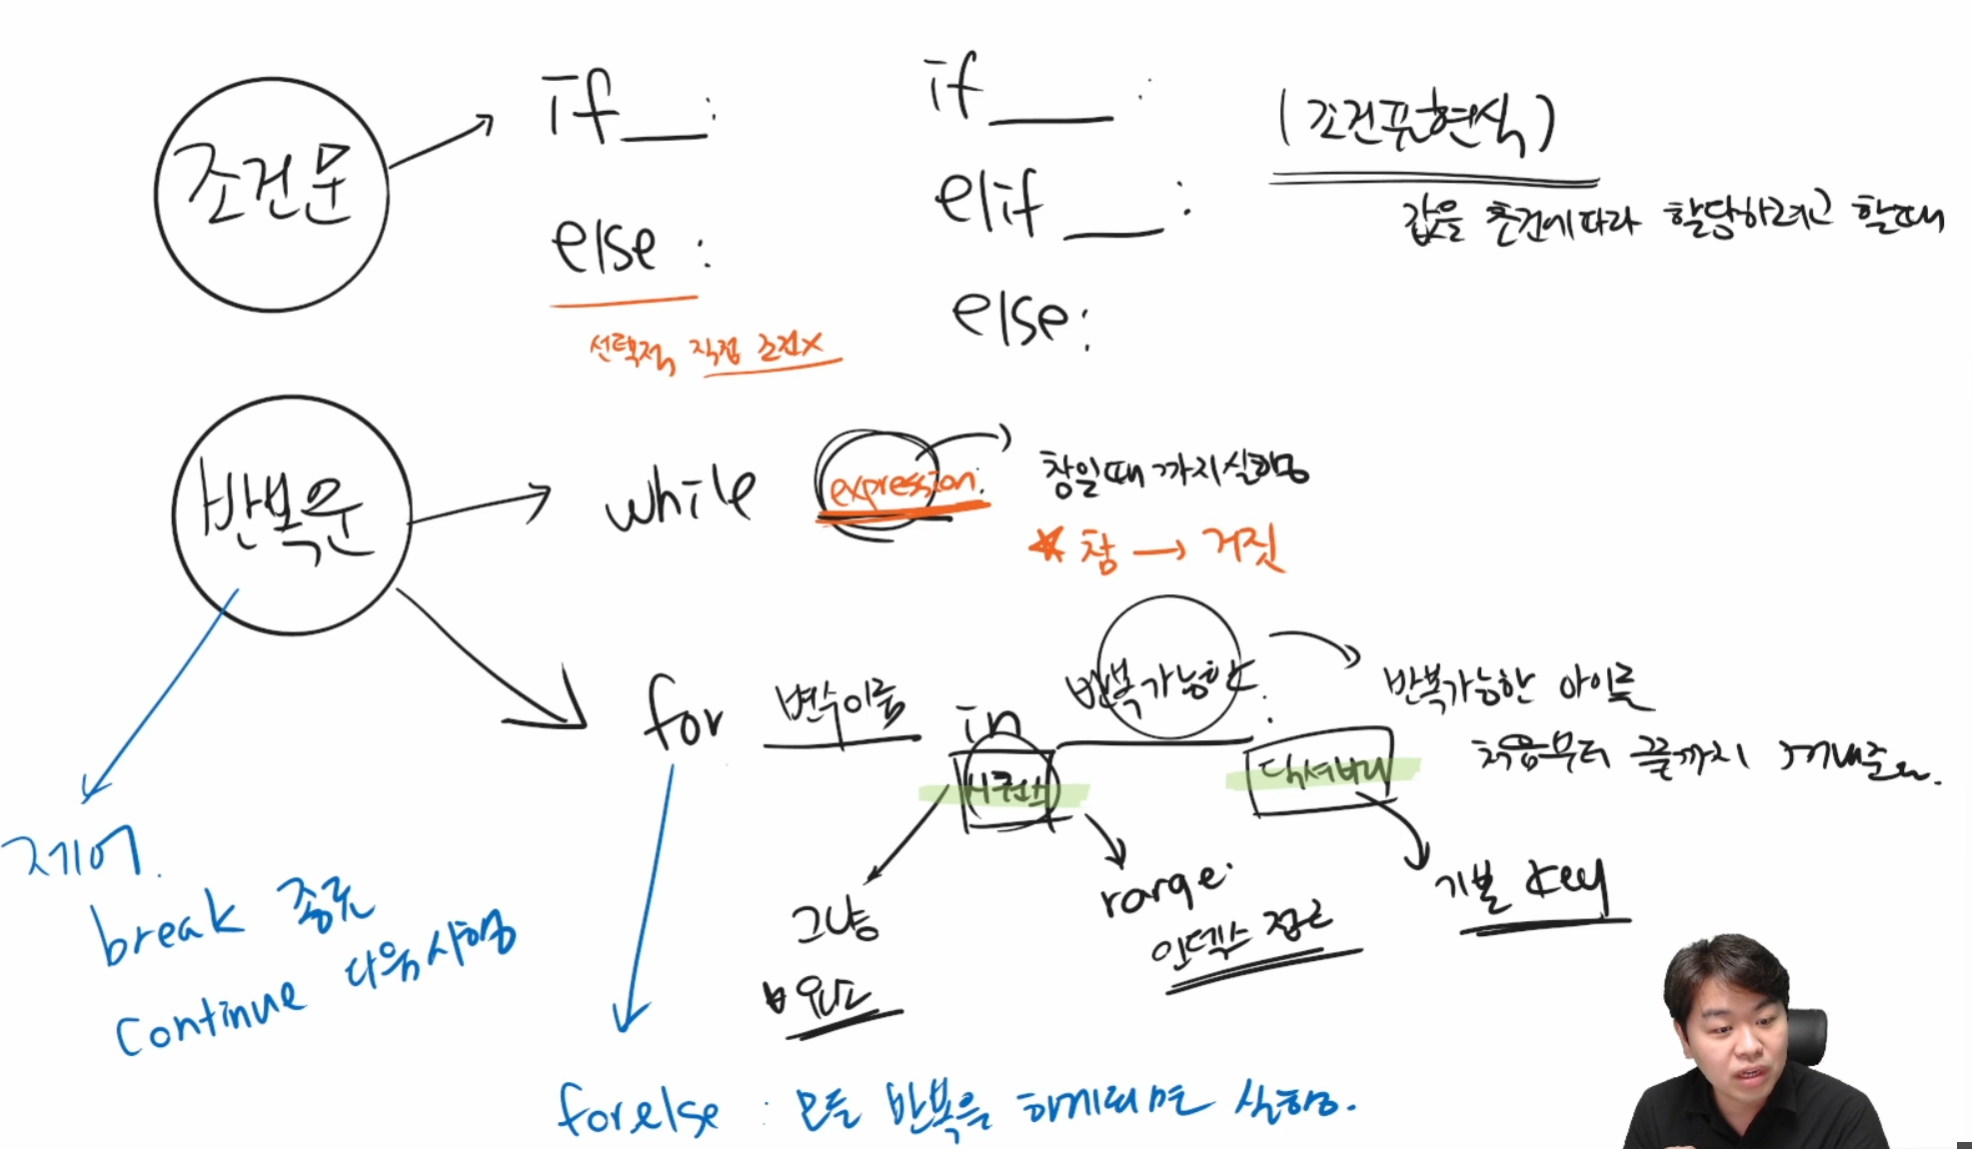 조건문
if ___:
else :
선택적, 직접 조건x
if ___ :
elif ___ :
else:
(조건표현식)
값을 조건에따라 할당하려고 할때
반복문
while expression:
참일때 까지 실행
★ 참 → 거짓
for 변수이름 in 반복가능한 :
반복가능한 아이를
처음부터 끝까지 꺼내준다.
시퀀스
딕셔너리
그냥
range
인덱스 접근
기본 key
제어.
break 종료
continue 다음시행
for else : 모든 반복을 하게되면 실행.